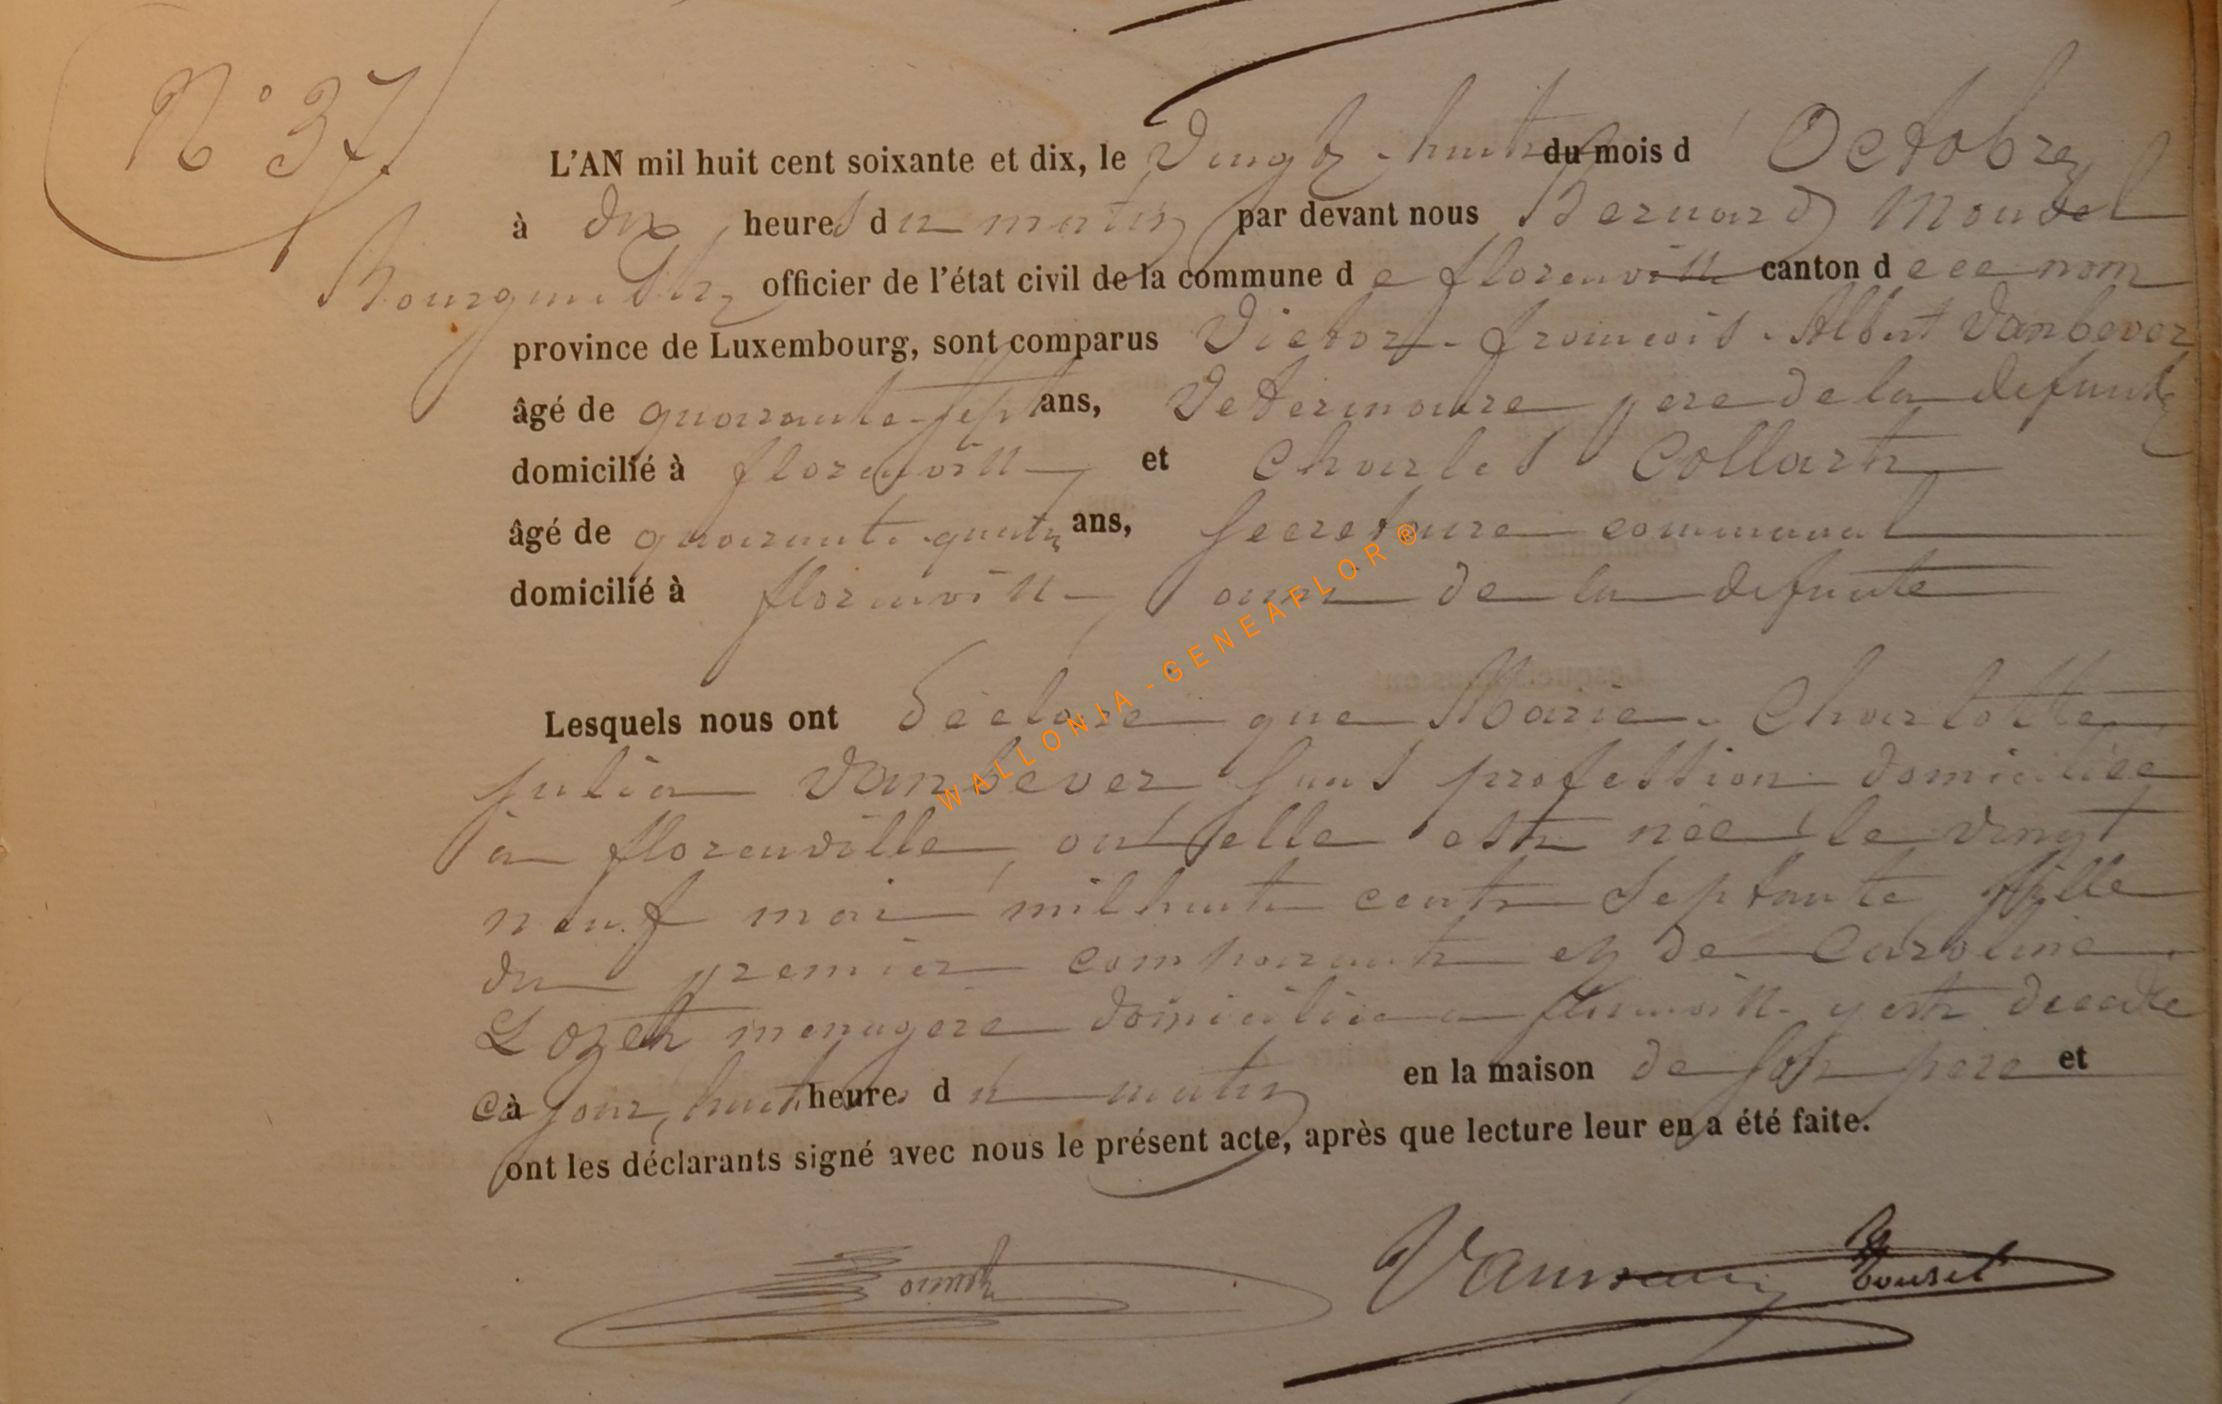 N° 37
L'AN mil huit cent soixante et dix, le Vingt-huit du mois d'Octobre
à dix heures du matin par devant nous Bernard Moudel
Bourgmestre officier de l'état civil de la commune de florenville canton de ce nom
province de Luxembourg, sont comparus Victor-francois-Albert Vanbever
âgé de quarante-sept ans, Vétérinaire père de la défunte
domicilié à florenville et Charles Collart
âgé de quarante-quatre ans, Secretaire communal
domicilié à florenville ami de la défunte
Lesquels nous ont déclaré que Marie-Charlotte
Julia Vanbever sans profession domiciliée
à florenville, où elle est née le vingt
neuf mai mil huit cent septante, fille
du premier comparant et de Caroline
Lozet menagère domiciliée a florenville y est decedée
ce jour, à huit heures du matin en la maison de son père et
ont les déclarants signé avec nous le présent acte, après que lecture leur en a été faite.
WALLONIA-GENEAFLOR®